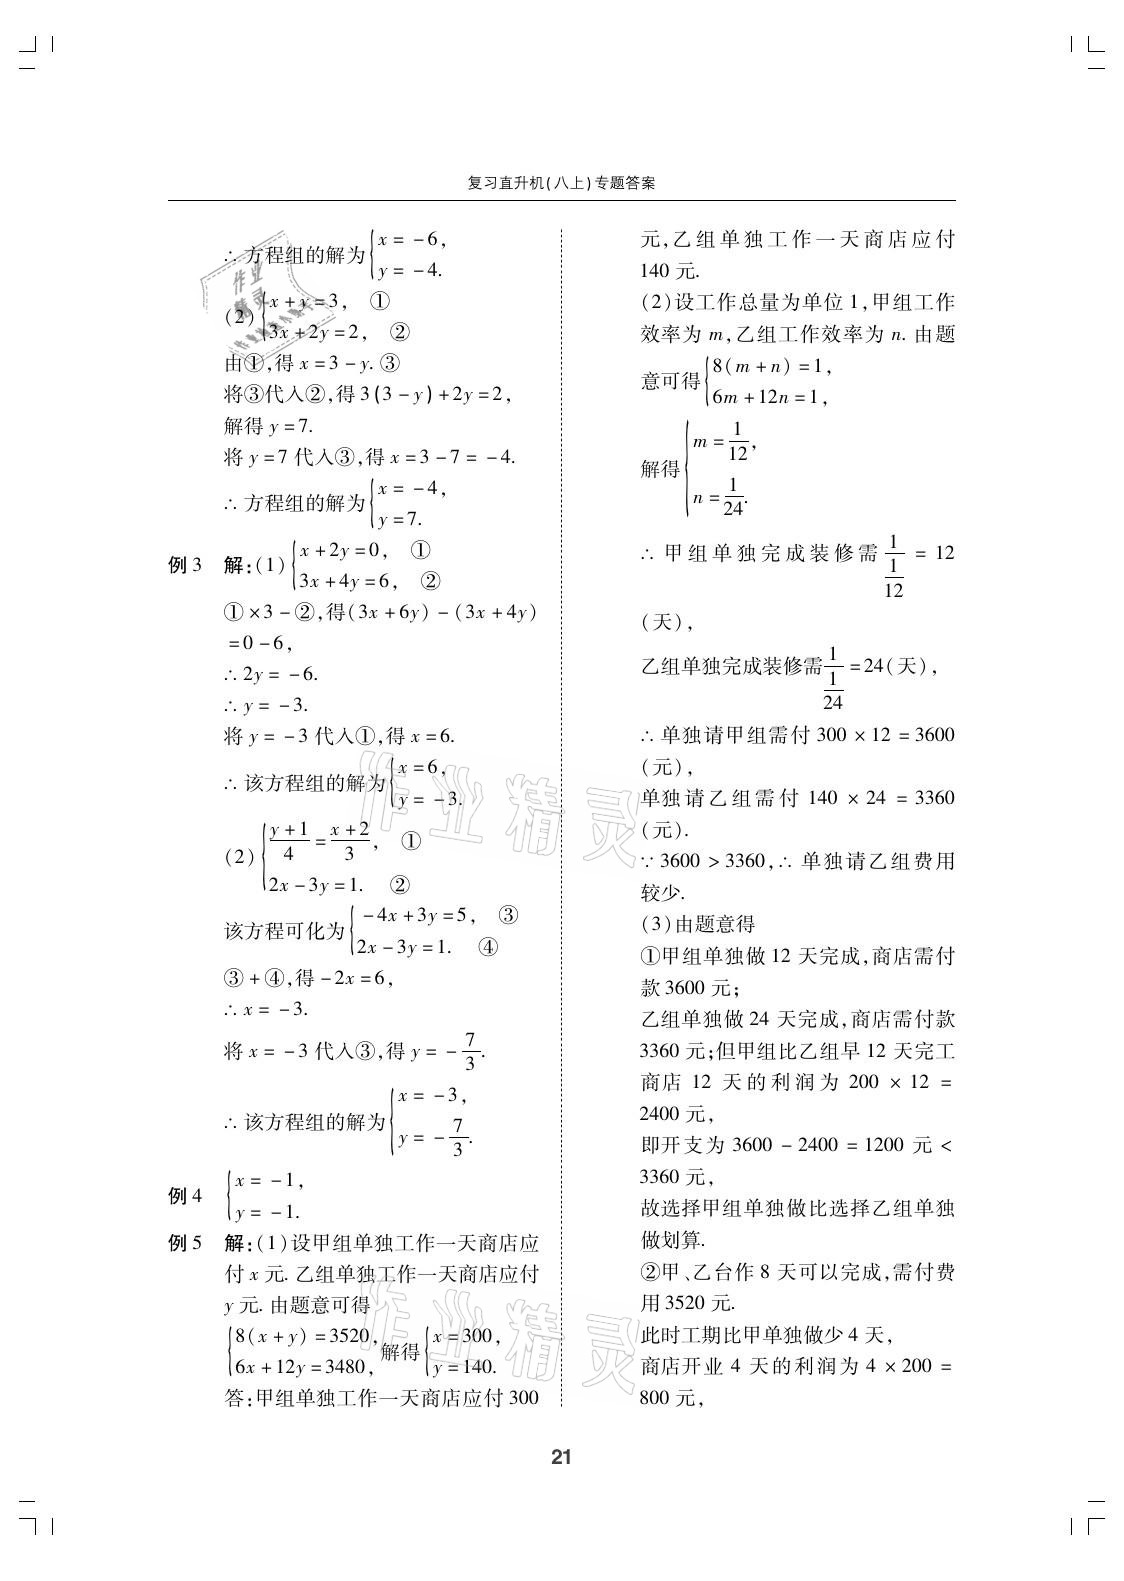 复习直升机(八上)专题答案
∴ 方程组的解为{x = -6,
y = -4.
(2){x + y = 3, ①
3x + 2y = 2, ②
由①,得 x = 3 - y. ③
将③代入②,得 3(3 - y) + 2y = 2,
解得 y = 7.
将 y = 7 代入③,得 x = 3 - 7 = -4.
∴ 方程组的解为{x = -4,
y = 7.
例 3 解:(1){x + 2y = 0, ①
3x + 4y = 6, ②
① × 3 - ②,得(3x + 6y) - (3x + 4y)
= 0 - 6,
∴ 2y = -6.
∴ y = -3.
将 y = -3 代入①,得 x = 6.
∴ 该方程组的解为{x = 6,
y = -3.
(2){(y + 1)/4 = (x + 2)/3, ①
2x - 3y = 1. ②
该方程可化为{-4x + 3y = 5, ③
2x - 3y = 1. ④
③ + ④,得 -2x = 6,
∴ x = -3.
将 x = -3 代入③,得 y = -7/3.
∴ 该方程组的解为{x = -3,
y = -7/3.
例 4 {x = -1,
y = -1.
例 5 解:(1)设甲组单独工作一天商店应
付 x 元. 乙组单独工作一天商店应付
y 元. 由题意可得
{8(x + y) = 3520,
6x + 12y = 3480, 解得{x = 300,
y = 140.
答:甲组单独工作一天商店应付 300
元,乙组单独工作一天商店应付
140 元.
(2)设工作总量为单位 1,甲组工作
效率为 m,乙组工作效率为 n. 由题
意可得{8(m + n) = 1,
6m + 12n = 1,
解得{m = 1/12,
n = 1/24.
∴ 甲组单独完成装修需 1/(1/12) = 12
(天),
乙组单独完成装修需 1/(1/24) = 24(天),
∴ 单独请甲组需付 300 × 12 = 3600
(元),
单独请乙组需付 140 × 24 = 3360
(元).
∵ 3600 > 3360,∴ 单独请乙组费用
较少.
(3)由题意得
①甲组单独做 12 天完成,商店需付
款 3600 元;
乙组单独做 24 天完成,商店需付款
3360 元;但甲组比乙组早 12 天完工
商店 12 天的利润为 200 × 12 =
2400 元,
即开支为 3600 - 2400 = 1200 元 <
3360 元,
故选择甲组单独做比选择乙组单独
做划算.
②甲、乙台作 8 天可以完成,需付费
用 3520 元.
此时工期比甲单独做少 4 天,
商店开业 4 天的利润为 4 × 200 =
800 元,
21
作业精灵
作业精灵
作业
精灵